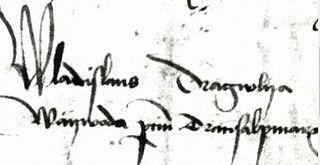 Wladislaus Dragwlya
Waywoda p̃tiũ Transalpinarũ